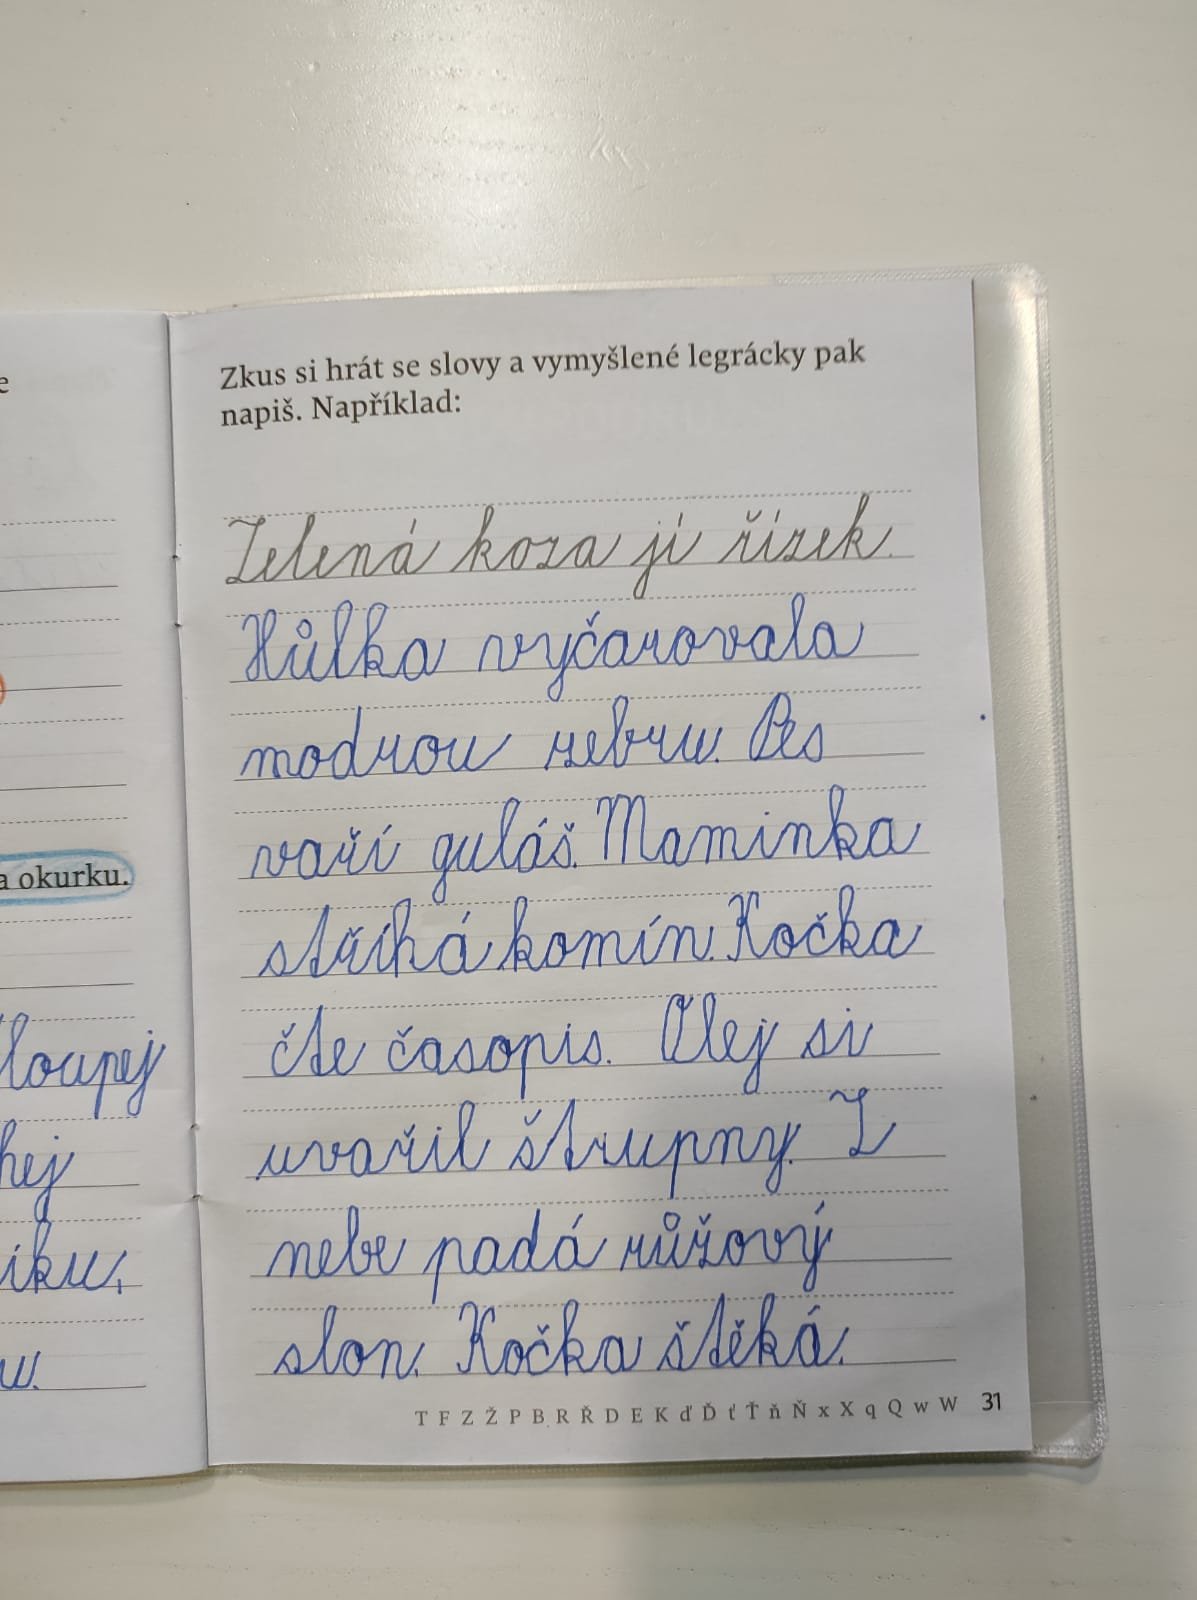 e
Zkus si hrát se slovy a vymyšlené legrácky pak
napiš. Například:
Zelená koza jí řízek.
Hůlka vyčarovala
modrou zebru. Pes
vaří guláš. Maminka
stříhá komín. Kočka
a okurku.
čte časopis. Olej si
loupej
uvařil štrupny. Z
hej
nebe padá růžový
íku,
slon. Kočka štěká.
u.
T F Z Ž P B R Ř D E K ď Ď ť Ť ň Ň x X q Q w W 31